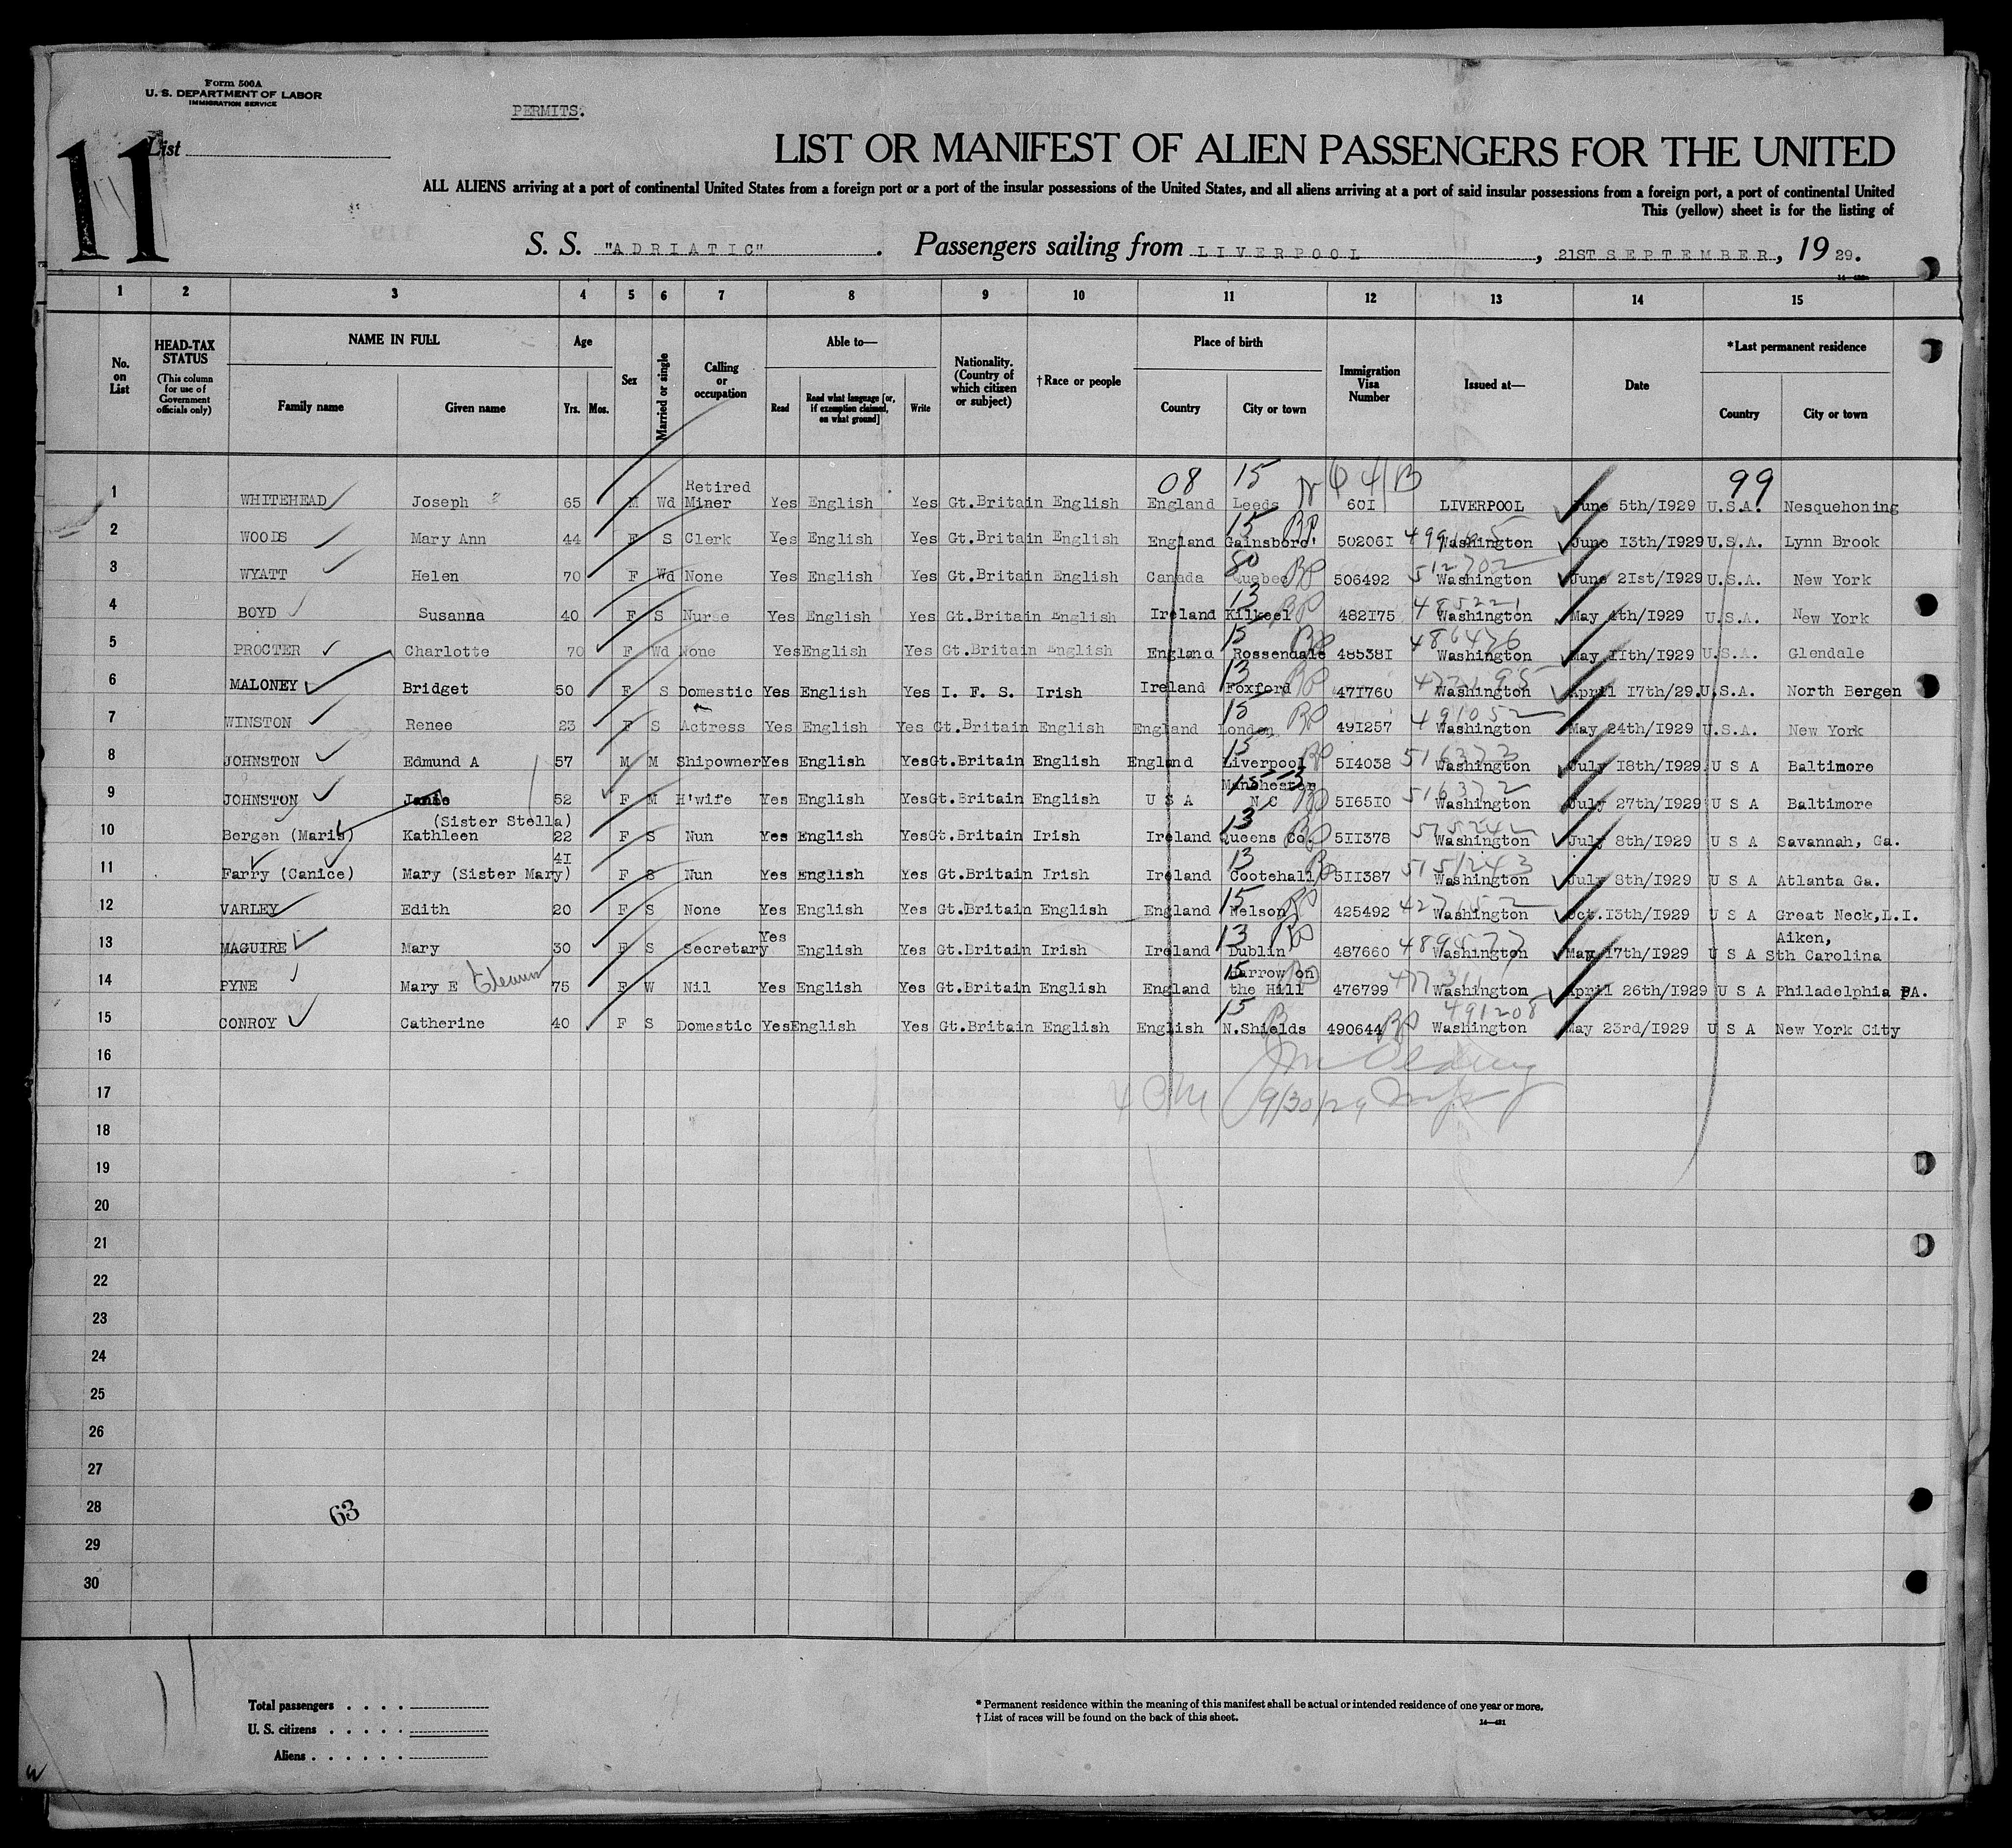 Form 500A
U. S. DEPARTMENT OF LABOR
IMMIGRATION SERVICE
PERMITS.
11
List
LIST OR MANIFEST OF ALIEN PASSENGERS FOR THE UNITED
ALL ALIENS arriving at a port of continental United States from a foreign port or a port of the insular possessions of the United States, and all aliens arriving at a port of said insular possessions from a foreign port, a port of continental United
This (yellow) sheet is for the listing of
S. S. "ADRIATIC". Passengers sailing from LIVERPOOL, 21ST SEPTEMBER, 19 29.
1 2 3 4 5 6 7 8 9 10 11 12 13 14 15
No. on List
HEAD-TAX STATUS (This column for use of Government officials only)
NAME IN FULL Family name Given name
Age Yrs. Mos.
Sex
Married or single
Calling or occupation
Able to— Read Read what language [or, if exemption claimed, on what ground] Write
Nationality. (Country of which citizen or subject)
†Race or people
Place of birth Country City or town
Immigration Visa Number
Issued at—
Date
*Last permanent residence Country City or town
08 15 99
1 WHITEHEAD Joseph 65 M Wd Retired Miner Yes English Yes Gt.Britain English England Leeds 601 LIVERPOOL June 5th/1929 U.S.A. Nesquehoning
2 WOODS Mary Ann 44 F S Clerk Yes English Yes Gt.Britain English England Gainsboro' 15 502061 Washington June 13th/1929 U.S.A. Lynn Brook
3 WYATT Helen 70 F Wd None Yes English Yes Gt.Britain English Canada Quebec 80 506492 512702 Washington June 21st/1929 U.S.A. New York
4 BOYD Susanna 40 F S Nurse Yes English Yes Gt.Britain English Ireland Kilkeel 13 482175 485221 Washington May 4th/1929 U.S.A. New York
5 PROCTER Charlotte 70 F Wd None Yes English Yes Gt.Britain English England Rossendale 15 485381 486476 Washington May 11th/1929 U.S.A. Glendale
6 MALONEY Bridget 50 F S Domestic Yes English Yes I. F. S. Irish Ireland Foxford 13 471760 Washington April 17th/29. U.S.A. North Bergen
7 WINSTON Renee 23 F S Actress Yes English Yes Gt.Britain English England London 15 491257 491052 Washington May 24th/1929 U.S.A. New York
8 JOHNSTON Edmund A 57 M M Shipowner Yes English Yes Gt.Britain English England Liverpool 15 514038 516373 Washington July 18th/1929 U S A Baltimore
9 JOHNSTON Janie 52 F M H'wife Yes English Yes Gt.Britain English U S A Manchester N C 516510 516372 Washington July 27th/1929 U S A Baltimore
10 Bergen (Maris) (Sister Stella) Kathleen 22 F S Nun Yes English Yes Gt.Britain Irish Ireland Queens Co. 13 511378 515242 Washington July 8th/1929 U S A Savannah, Ga.
11 Farry (Canice) Mary (Sister Mary) 41 F S Nun Yes English Yes Gt.Britain Irish Ireland Cootehall 13 511387 515243 Washington July 8th/1929 U S A Atlanta Ga.
12 VARLEY Edith 20 F S None Yes English Yes Gt.Britain English England Nelson 15 425492 Washington Oct.13th/1929 U S A Great Neck,L.I.
13 MAGUIRE Mary 30 F S Secretary Yes English Yes Gt.Britain Irish Ireland Dublin 13 487660 Washington May 17th/1929 U S A Aiken, Sth Carolina
14 PYNE Mary E 75 F W Nil Yes English Yes Gt.Britain English England Harrow on the Hill 15 476799 Washington April 26th/1929 U S A Philadelphia PA.
15 CONROY Catherine 40 F S Domestic Yes English Yes Gt.Britain English English N.Shields 15 490644 491208 Washington May 23rd/1929 U S A New York City
16
17 9/30/29
18
19
20
21
22
23
24
25
26
27
28 63
29
30
Total passengers
U. S. citizens
Aliens
* Permanent residence within the meaning of this manifest shall be actual or intended residence of one year or more.
† List of races will be found on the back of this sheet.